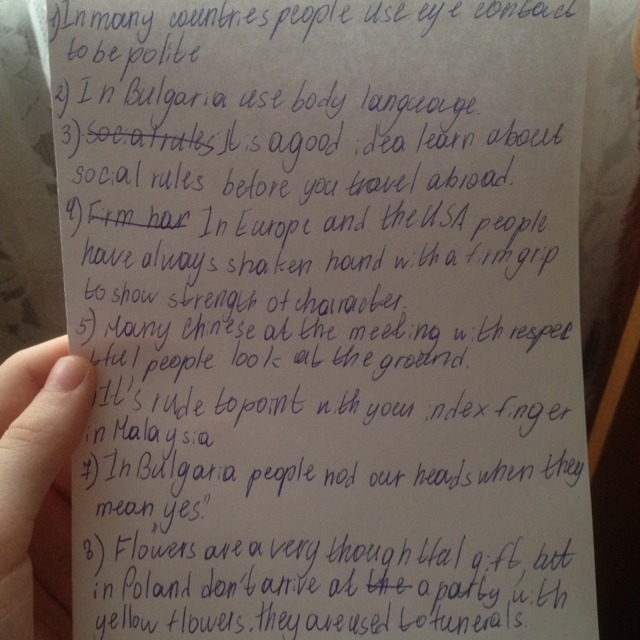 1) In many countries people use eye contact
to be polite
2) In Bulgaria use body language.
3) Social rules It is a good idea learn about
social rules before you travel abroad.
4) Firm har In Europe and the USA people
have always shaken hand with a firm grip
to show strength of character.
5) Many Chinese at the meeting with respec
tful people look at the ground.
) It's rude to point with your index finger
in Malaysia
7) In Bulgaria people nod our heads when they
mean "yes".
8) Flowers are a very thoughtful gift, but
in Poland don't arrive at the a party with
yellow flowers. they are used to funerals.